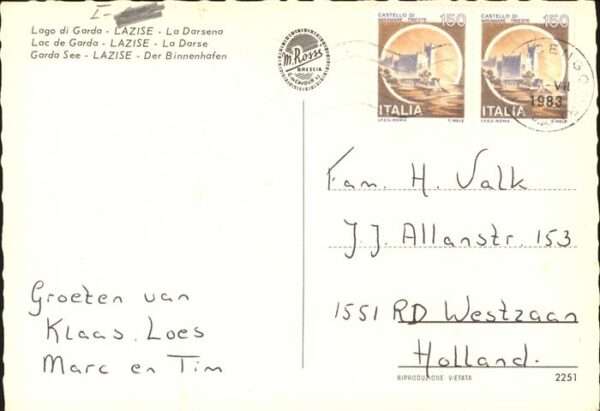 Lago di Garda - LAZISE - La Darsena
Lac de Garda - LAZISE - La Darse
Garda See - LAZISE - Der Binnenhafen
M. Rossi
BRESCIA
CASTELLO DI MIRAMARE TRIESTE 150
ITALIA
I.P.Z.S. ROMA
CASTELLO DI MIRAMARE TRIESTE 150
ITALIA
I.P.Z.S. ROMA
VII
1983
Fam. H. Valk
J.J. Allanstr. 153
1551 RD Westzaan
Holland.
Groeten van
Klaas, Loes
Marc en Tim
RIPRODUZIONE VIETATA
2251